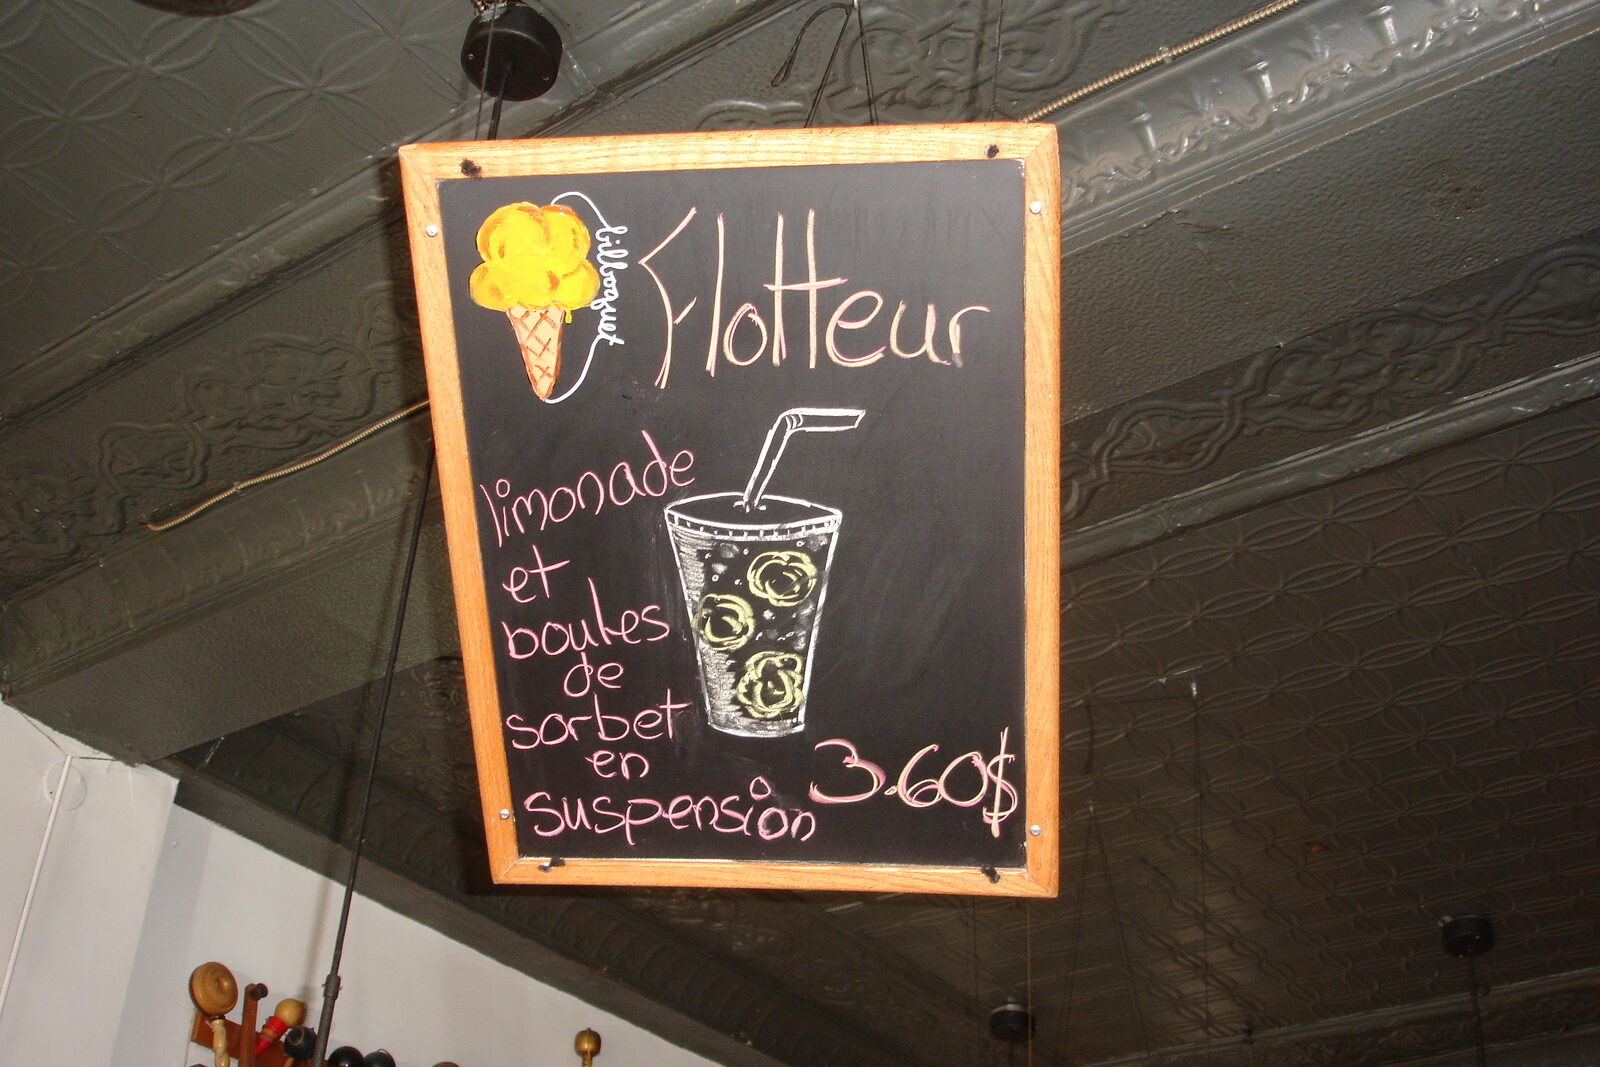 bilboquet
Flotteur
limonade
et
boules
de
sorbet
en
suspension
3.60$